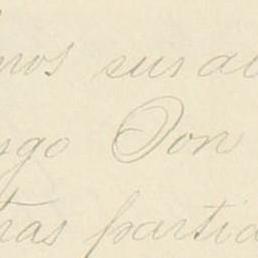 nos sus a
go Don
ras partid